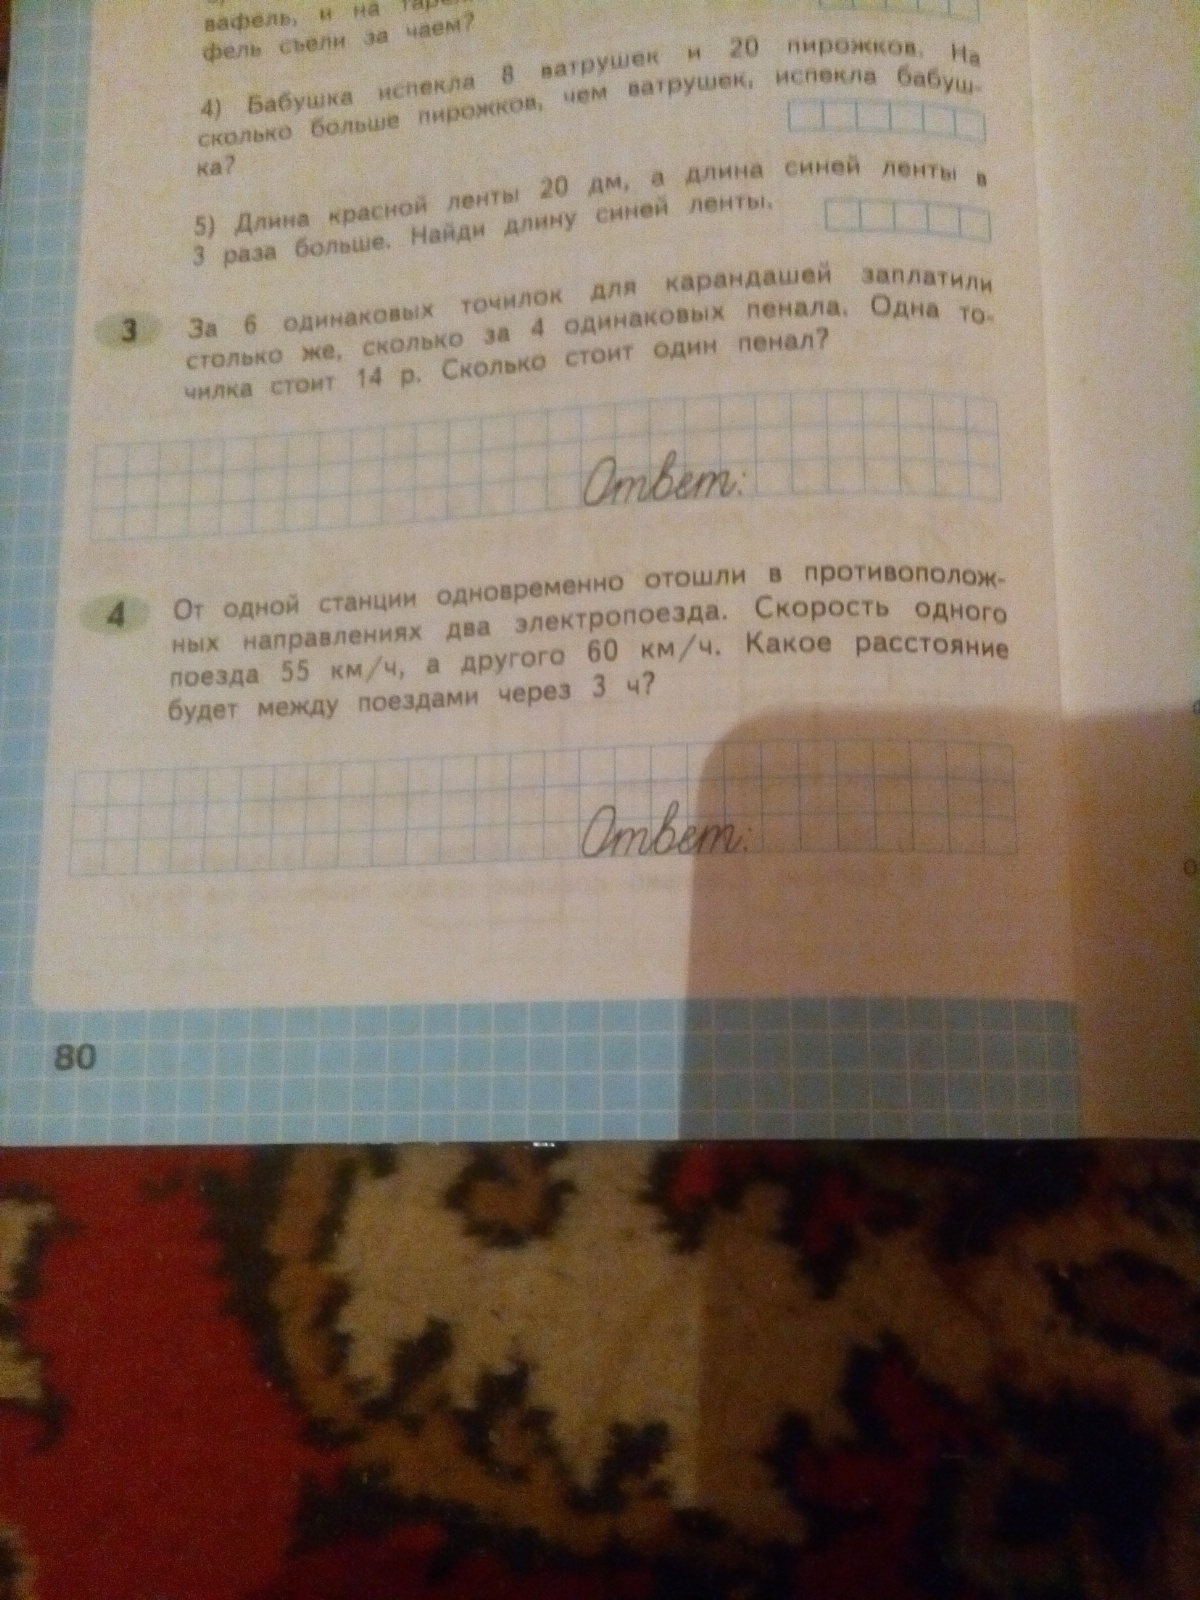 вафель, и на
фель съели за чаем?
4) Бабушка испекла 8 ватрушек и 20 пирожков. На
сколько больше пирожков, чем ватрушек, испекла бабуш-
ка?
5) Длина красной ленты 20 дм, а длина синей ленты в
3 раза больше. Найди длину синей ленты.
3 За 6 одинаковых точилок для карандашей заплатили
столько же, сколько за 4 одинаковых пенала. Одна то-
чилка стоит 14 р. Сколько стоит один пенал?
Ответ:
4 От одной станции одновременно отошли в противополож-
ных направлениях два электропоезда. Скорость одного
поезда 55 км/ч, а другого 60 км/ч. Какое расстояние
будет между поездами через 3 ч?
Ответ:
80